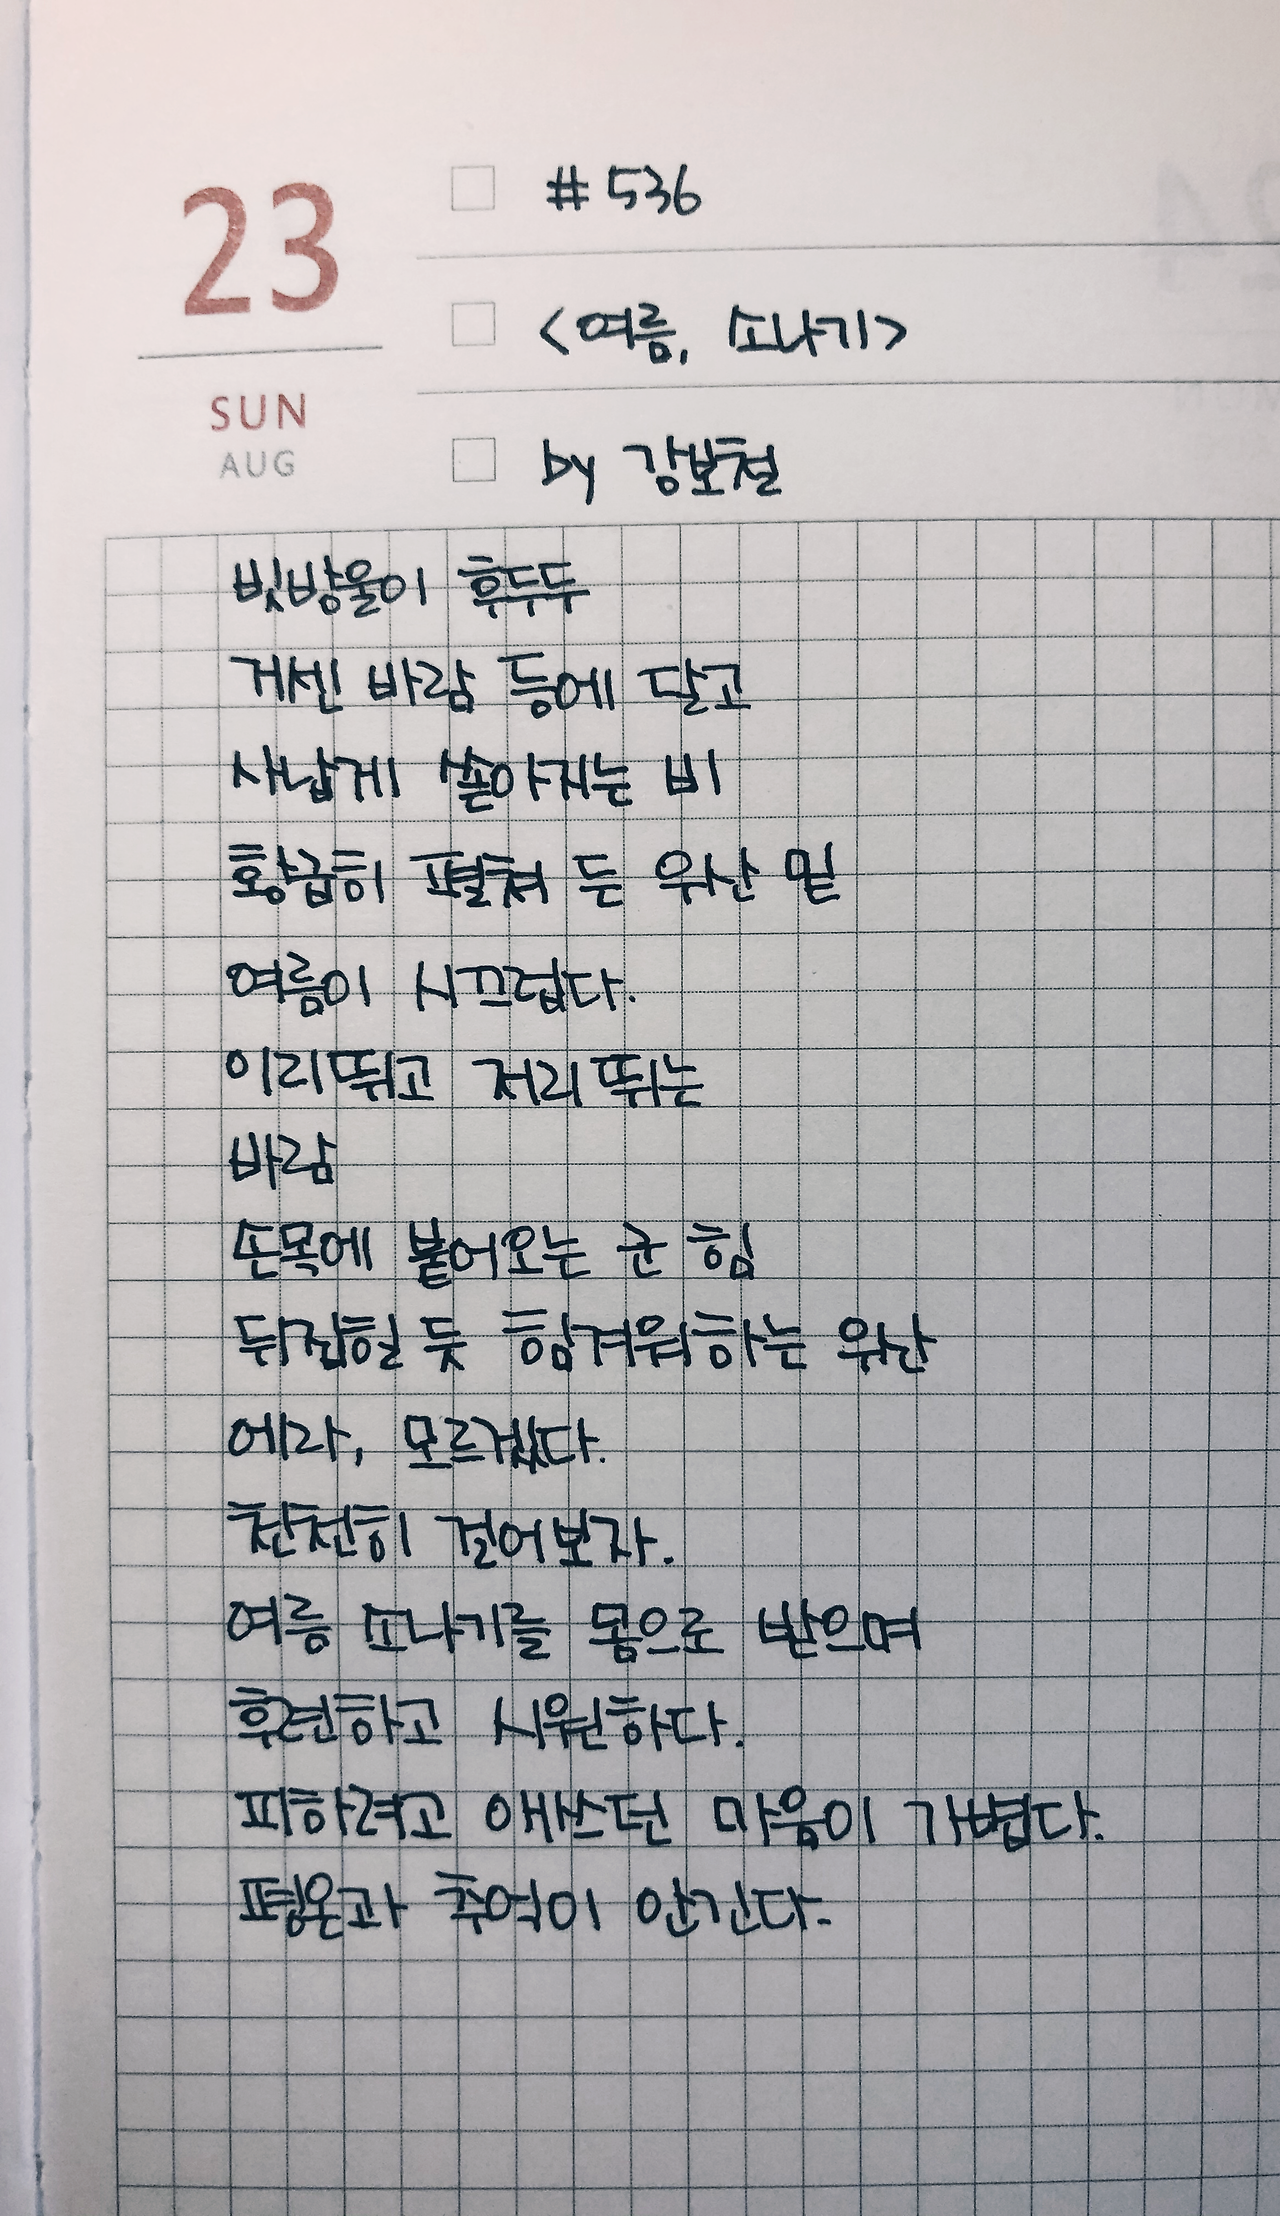 23
SUN
AUG
# 536
<여름, 소나기>
by 강보철
빗방울이 후두두
거센 바람 등에 달고
사납게 쏟아지는 비
황급히 펼쳐 든 우산 밑
여름이 시끄럽다.
이리뛰고 저리뛰는
바람
손목에 붙어오는 군 힘
뒤집힐 듯 힘겨워하는 우산
에라, 모르겠다.
찬찬히 걸어보자.
여름 소나기를 몸으로 받으며
후련하고 시원하다.
피하려고 애쓰던 마음이 가볍다.
평온과 추억이 안긴다.